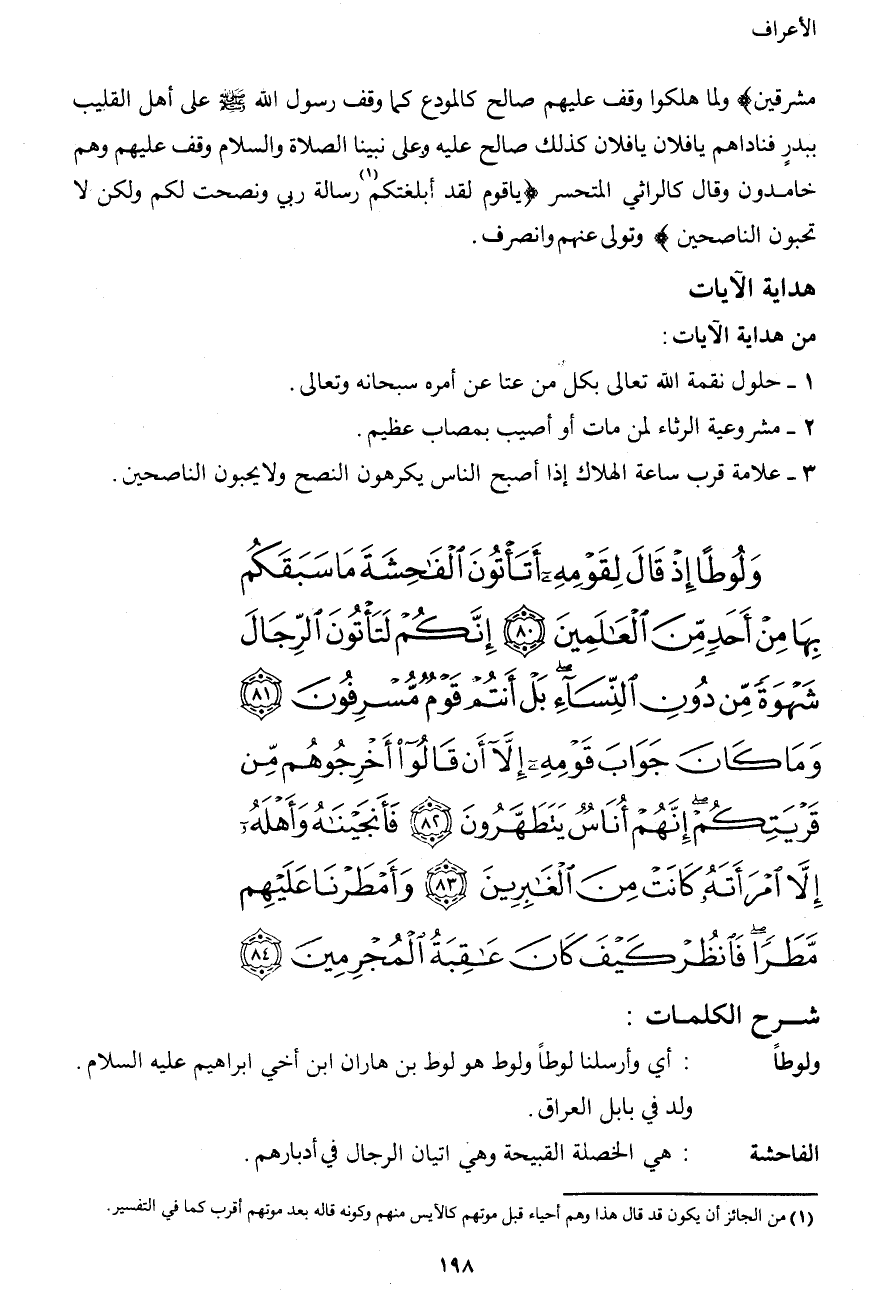 الأعراف
مشرقين﴾ ولما هلكوا وقف عليهم صالح كالمودع كما وقف رسول الله ﷺ على أهل القليب
ببدرٍ فناداهم يافلان يافلان كذلك صالح عليه وعلى نبينا الصلاة والسلام وقف عليهم وهم
خامـدون وقال كالراثي المتحسر ﴿ياقوم لقد أبلغتكم(١) رسالة ربي ونصحت لكم ولكن لا
تحبون الناصحين﴾ وتولى عنهم وانصرف.
هداية الآيات
من هداية الآيات:
١ ـ حلول نقمة الله تعالى بكل من عتا عن أمره سبحانه وتعالى.
٢ ـ مشروعية الرثاء لمن مات أو أصيب بمصاب عظيم.
٣ ـ علامة قرب ساعة الهلاك إذا أصبح الناس يكرهون النصح ولايحبون الناصحين.
وَلُوطًا إِذۡ قَالَ لِقَوۡمِهِۦٓ أَتَأۡتُونَ ٱلۡفَٰحِشَةَ مَا سَبَقَكُم
بِهَا مِنۡ أَحَدٖ مِّنَ ٱلۡعَٰلَمِينَ ٨٠ إِنَّكُمۡ لَتَأۡتُونَ ٱلرِّجَالَ
شَهۡوَةٗ مِّن دُونِ ٱلنِّسَآءِۚ بَلۡ أَنتُمۡ قَوۡمٞ مُّسۡرِفُونَ ٨١
وَمَا كَانَ جَوَابَ قَوۡمِهِۦٓ إِلَّآ أَن قَالُوٓاْ أَخۡرِجُوهُم مِّن
قَرۡيَتِكُمۡۖ إِنَّهُمۡ أُنَاسٞ يَتَطَهَّرُونَ ٨٢ فَأَنجَيۡنَٰهُ وَأَهۡلَهُۥٓ
إِلَّا ٱمۡرَأَتَهُۥ كَانَتۡ مِنَ ٱلۡغَٰبِرِينَ ٨٣ وَأَمۡطَرۡنَا عَلَيۡهِم
مَّطَرٗاۖ فَٱنظُرۡ كَيۡفَ كَانَ عَٰقِبَةُ ٱلۡمُجۡرِمِينَ ٨٤
شـرح الكلمـات :
ولوطاً : أي وأرسلنا لوطاً ولوط هو لوط بن هاران ابن أخي ابراهيم عليه السلام.
ولد في بابل العراق.
الفاحشة : هي الخصلة القبيحة وهي اتيان الرجال في أدبارهم.
(١) من الجائز أن يكون قد قال هذا وهم أحياء قبل موتهم كالآيس منهم وكونه قاله بعد موتهم أقرب كما في التفسير.
١٩٨